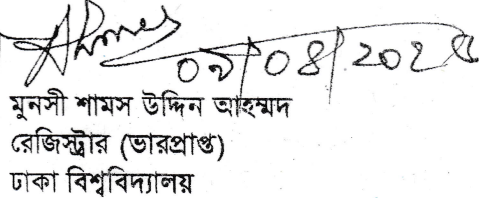 ০৯/০৪/২০২৫
মুনসী শামস উদ্দিন আহম্মদ
রেজিস্ট্রার (ভারপ্রাপ্ত)
ঢাকা বিশ্ববিদ্যালয়